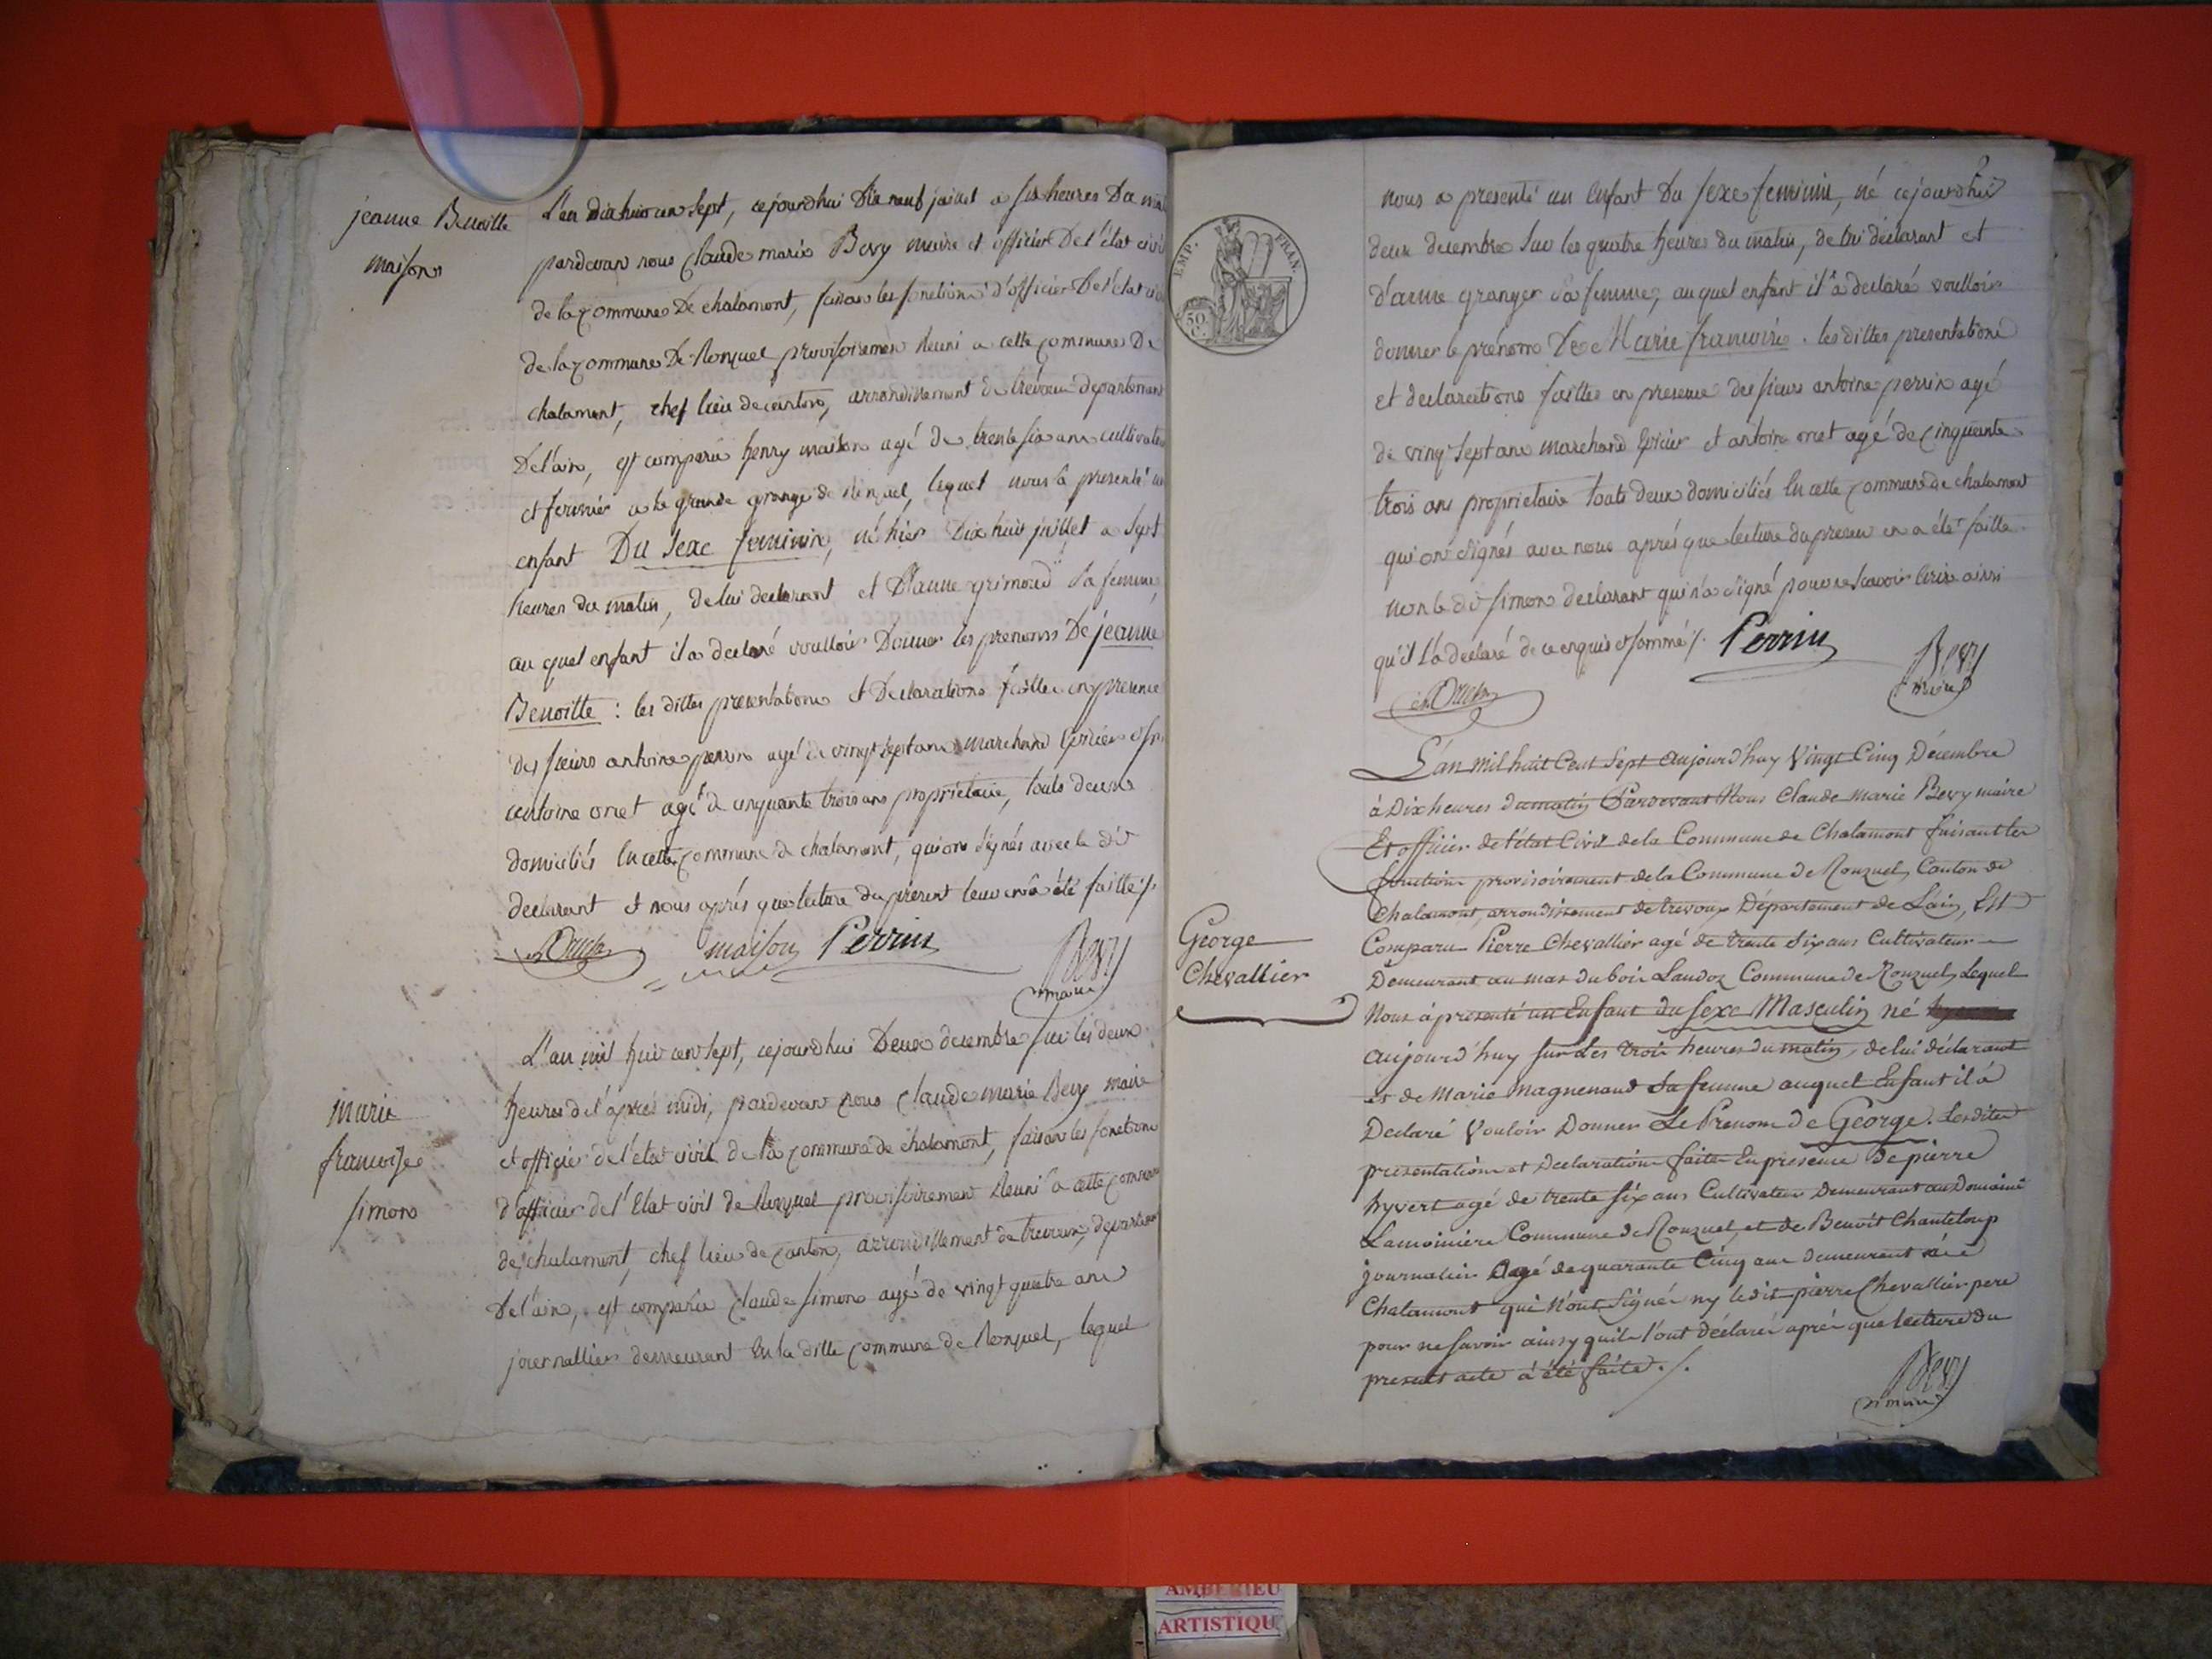 jeanne Benoitte
maison
L'an dix huit cent sept, cejourdhui Dix neuf juillet a six heures Du
pardevant nous Claude marie Bevy maire et officier De l'état civil
de la Commune De chalamont, faisant les fonctions d'officier De l'état
de la Commune De Ronzuel provisoirement Reuni a cette Commune De
chalamont, chef lieu de canton, arrondissement de trévoux departement
De l'ain, est comparu henry maison agé de trente six ans cultivateur
et fermier a la grande grange de Ronzuel, lequel nous a presenté un
enfant Du Sexe feminin, né hier Dix huit juillet a Sept
heures du matin, de lui declarant et D'anne grimaud Sa femme,
au quel enfant il a declaré voulloir Donner les prenoms De jeanne
Benoitte : les dittes presentations et Declarations faittes en presence
des sieurs antoine perrin agé de vingt Sept ans marchand Epicier et
antoine oret agé de cinquante trois ans propriétaire, touts deux
domiciliés En cette Commune de chalamont, qui ont signés avec le dit
declarant et nous aprés que lecture du présent leur en a été faitte ./.
maison Perrin
Bevy
maire
marie
francoise
simon
L'an mil huit cent sept, cejourdhui Deux decembre sur les deux
heures de l'après midi, pardevant nous Claude marie Bevy maire
et officier de l'état civil de la Commune de chalamont, faisant les fonctions
d'officier de l'Etat civil de Ronzuel provisoirement Reuni a cette Commune
de chalamont, chef lieu de Canton, arrondissement de trevoux, departement
De l'ain, est comparu Claude Simon agé de vingt quatre ans
journallier demeurant En la ditte Commune de Ronzuel, lequel
EMP. FRAN.
50 C.
nous a presenté un Enfant Du Sexe feminin, né cejourdhui
deux decembre Sur les quatre heures du matin, de lui déclarant et
d'anne granger Sa femme, au quel enfant il a declaré voulloir
donner le prenom De Marie francoise. les dittes presentations
et declarations faittes en presence des sieurs antoine perrin agé
de vingt Sept ans marchand Epicier et antoine oret agé de cinquante
trois ans proprietaire touts deux domiciliés En cette Commune de chalamont
qui ont signés avec nous aprés que lecture du present en a été faitte
non le dit Simon declarant qui n'a signé pour ne Savoir Ecrire ainsi
qu'il l'a déclaré de ce enquis et sommé ./. Perrin
Bevy
maire
George
Chevallier
L'an mil huit Cent Sept aujourd'huy Vingt Cinq Décembre
à Dix heures du matin Pardevant Nous Claude Marie Bevy maire
Et officier de l'état Civil de la Commune de Chalamont faisant les
fonctions provisoirement de la Commune de Ronzuel, Canton de
Chalamont, arrondissement de trevoux Département de L'ain, Est
Comparu Pierre Chevallier agé de trente Six ans Cultivateur
Demeurant au mas du bois Landoz Commune de Ronzuel, Lequel
Nous à presenté un Enfant du Sexe Masculin né
aujourd'huy Sur Les trois heures du matin, de lui déclarant
et de Marie Magnenaud Sa femme auquel Enfant il a
Declaré Vouloir Donner Le Prenom de George. Lesdites
presentations et Declarations faites En présence De pierre
hyvert agé de trente Six ans Cultivateur Demeurant au Domaine
Lamoinière Commune de Ronzuel, et de Benoit Chanteloup
journalier agé de quarante Cinq ans demeurant à
Chalamont qui N'ont Signés ny ledit pierre Chevallier pere
pour ne Savoir ainsy quils l'ont déclaré aprés que lecture du
present acte à été faite ./.
Bevy
maire
AMBERIEU
ARTISTIQU